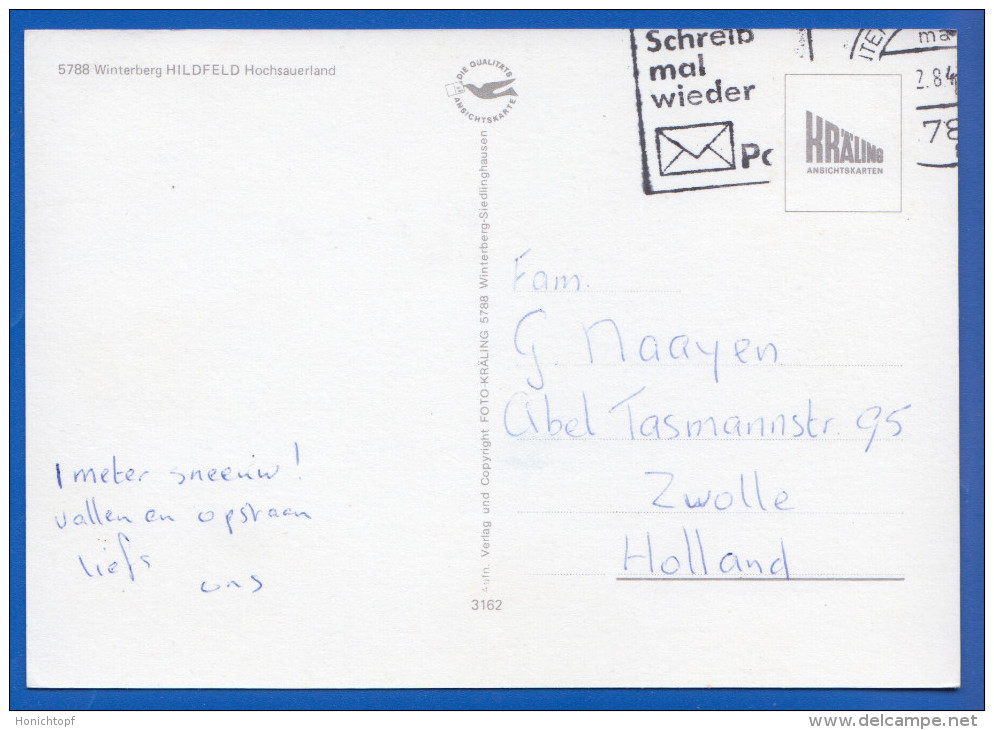 5788 Winterberg HILDFELD Hochsauerland
DIE QUALITÄTS
ANSICHTSKARTE
Schreib
mal
wieder
2.84
78
KRÄLING
ANSICHTSKARTEN
Aufn. Verlag und Copyright FOTO-KRÄLING 5788 Winterberg-Siedlinghausen
Fam.
G. Maayen
Abel Tasmannstr. 95
Zwolle
Holland
1 meter sneeuw!
vallen en opstaan
liefs
ons
3162
Honichtopf
www.delcampe.net